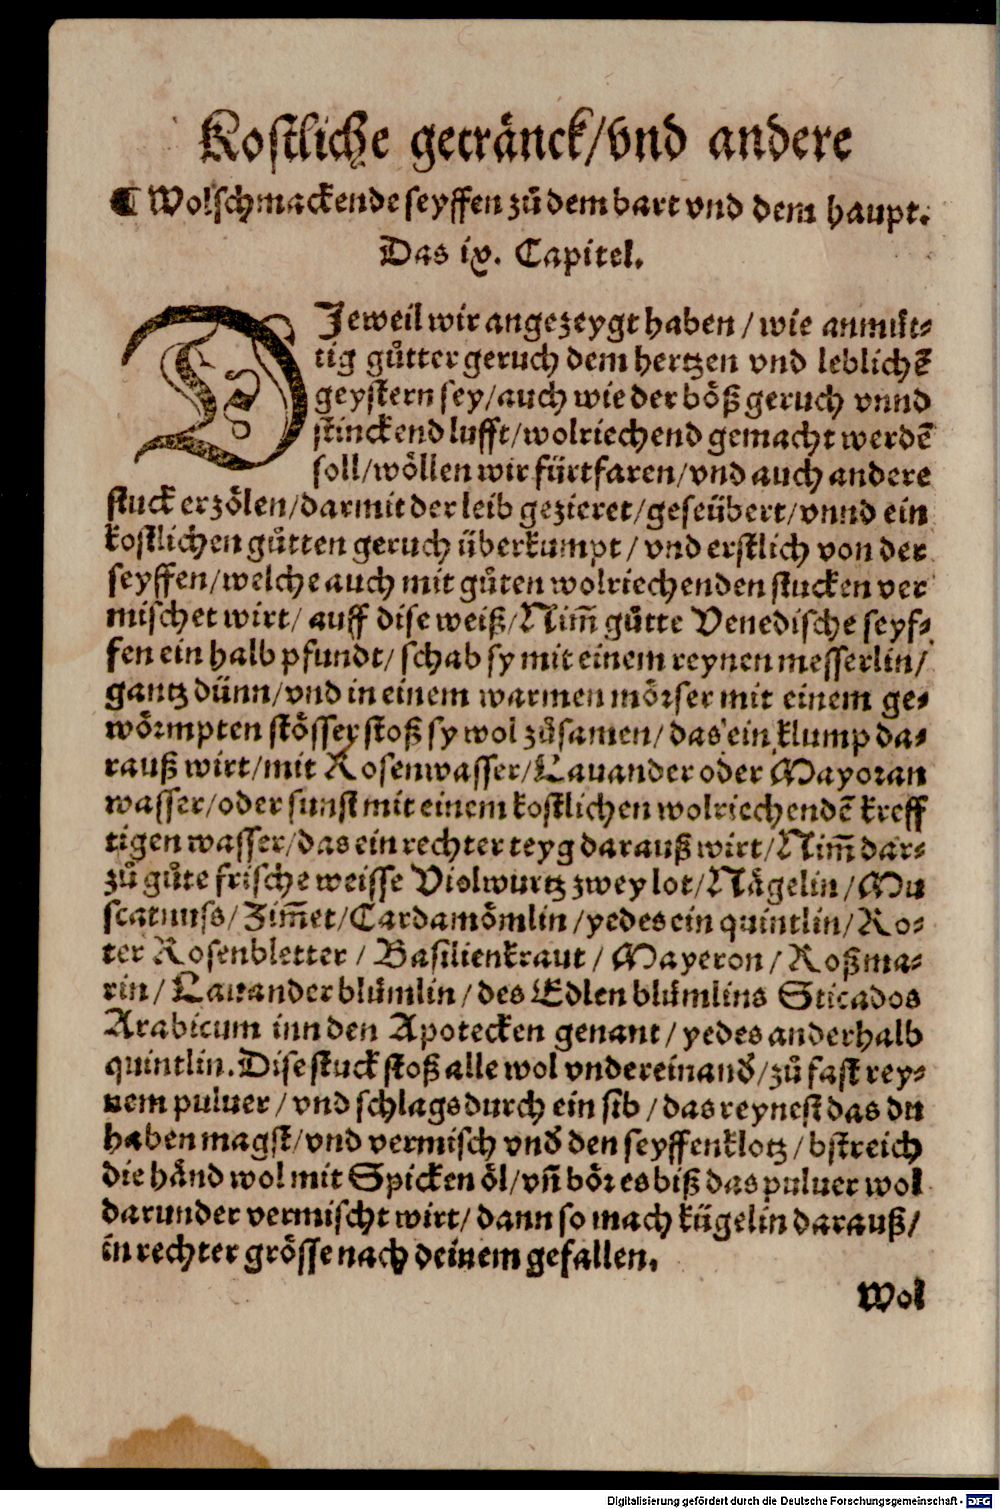 Kostliche getränck/vnd andere
¶ Wolschmackende seyffen zů dem bart vnd dem haupt.
Das ix. Capitel.
DJeweil wir angezeygt haben / wie anmůt-
tig gůtter geruch dem hertzen vnd leblichē
geystern sey/auch wie der böß geruch vnnd
stinckend lufft/wolriechend gemacht werdē
soll/wöllen wir fürtfaren/vnd auch andere
stuck erzölen/darmit der leib gezieret/geseübert/vnnd ein
kostlichen gůtten geruch überkumpt / vnd erstlich von der
seyffen/welche auch mit gůten wolriechenden stucken ver
mischet wirt/ auff dise weiß/Nim̄ gůtte Venedische seyf-
fen ein halb pfundt/ schab sy mit einem reynen messerlin/
gantz dünn/vnd in einem warmen mörser mit einem ge-
wörmpten stösser stoß sy wol zůsamen/das ein klump da-
rauß wirt/mit Rosenwasser/Lauander oder Mayoran
wasser/oder sunst mit einem kostlichen wolriechendē kreff
tigen wasser/das ein rechter teyg darauß wirt/Nim̄ dar-
zů gůte frische weisse Violwurtz zwey lot/Nägelin/Mu
scatnuss/Zim̄et/Cardamömlin/yedes ein quintlin/Ro-
ter Rosenbletter / Basilienkraut / Mayeron / Roßma-
rin/Lauander blůmlin/des Edlen blůmlins Sticados
Arabicum inn den Apotecken genant/yedes anderhalb
quintlin.Dise stuck stoß alle wol vndereinand̛/zů fast rey-
nem puluer / vnd schlags durch ein sib / das reynest das du
haben magst/vnd vermisch vnd̛ den seyffenklotz/bstreich
die händ wol mit Spicken öl/vn̄ bör es biß das puluer wol
darunder vermischt wirt/dann so mach kügelin darauß/
in rechter grösse nach deinem gefallen.
Wol
Digitalisierung gefördert durch die Deutsche Forschungsgemeinschaft - DFG